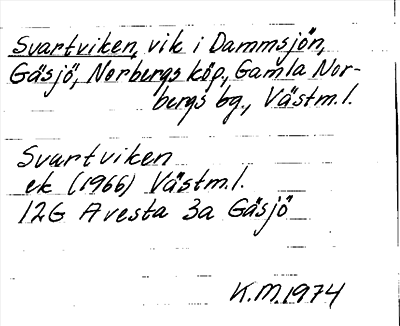 Svartviken, vik i Dammsjön,
Gäsjö, Norbergs köp., Gamla Nor-
bergs bg., Västm. l.
Svartviken
ek (1966) Västm. l.
12G Avesta 3a Gäsjö
K.M. 1974